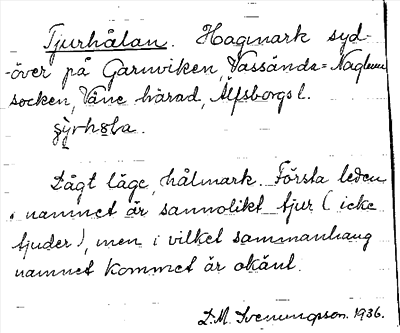 Tjurhålan. Hagmark syd-
-över på Garnviken, Vassända-Naglum
socken, Väne härad, Älfsborgs l.
Lågt läge, hålmark. Första leden
i namnet är sannolikt tjur (icke
tjuder), men i vilket sammanhang
namnet kommet är okänt.
D.M. Svenungsson. 1936.